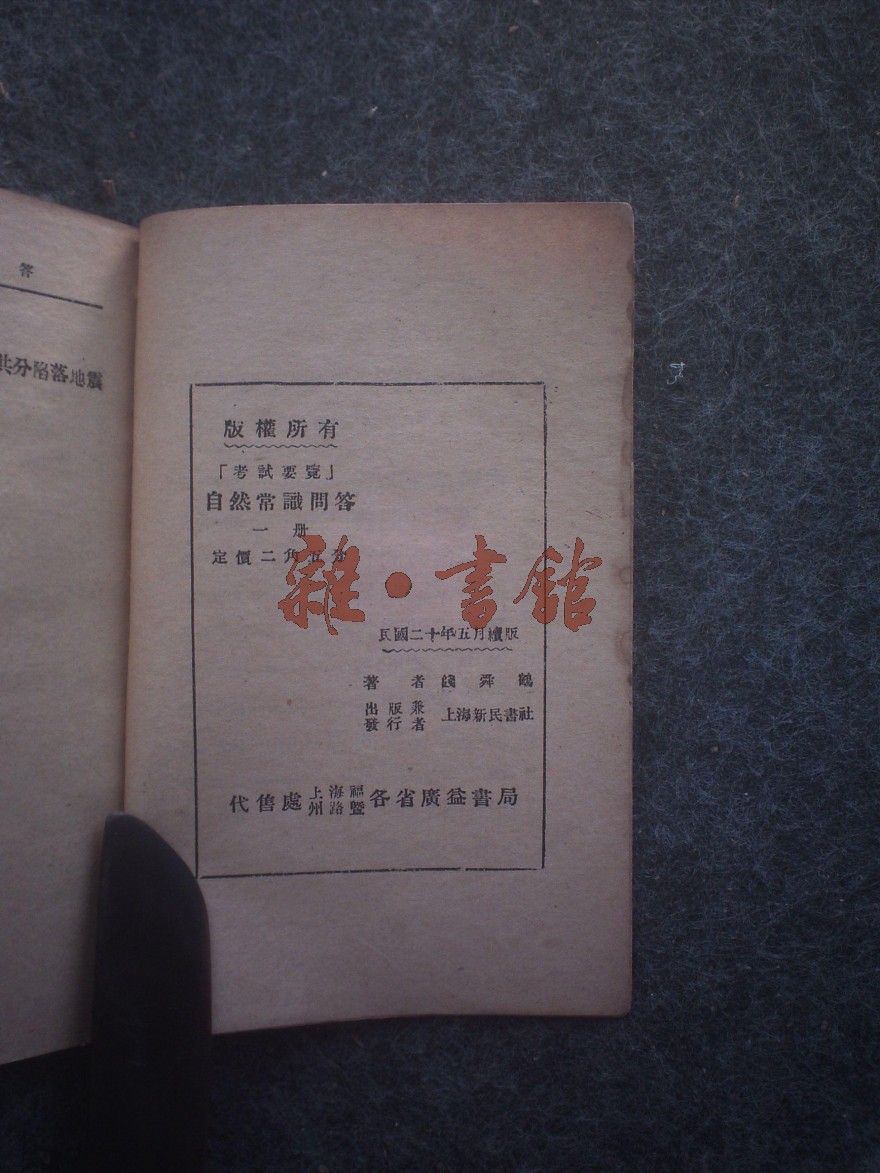 答
共分陷落地震
版權所有
「考試要覽」
自然常識問答
一册
定價二角五分
雜·書館
民國二十年五月續版
著者 錢舜鶴
出版兼發行者 上海新民書社
代售處 上海福州路暨各省廣益書局